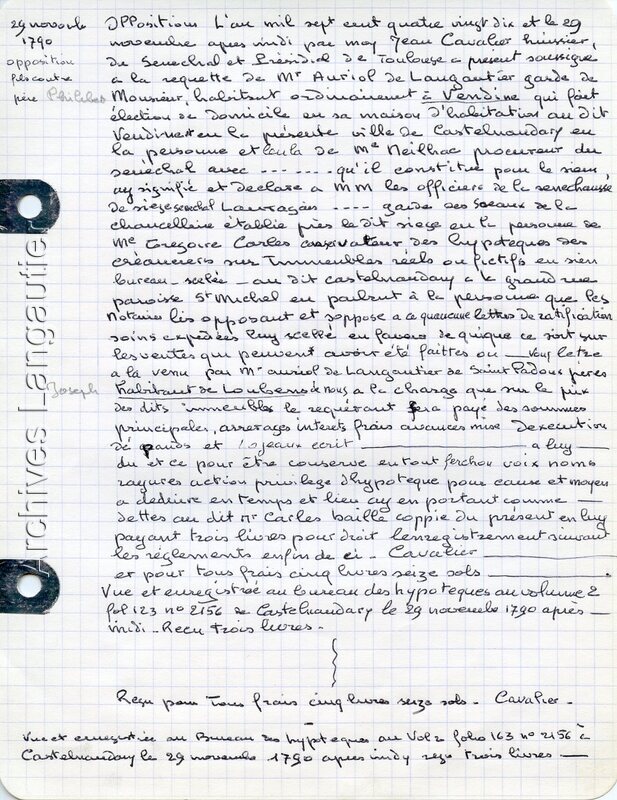 29 novembre
1790
opposition
fils contre
père Philibert
Oppositions L'an mil sept cent quatre vingt dix et le 29
novembre apres midi par moy Jean Cavalier huissier,
du Senechal et Présidial de Toulouse a present soussigne
a la requette de Mr Auriol de Langautier garde de
Monsieur, habitant ordinairement à Vendine qui fait
élection de domicile en sa maison d'habitation au dit
Vendine et en la présente ville de Castelnaudary en
la personne et de Me Neilhac procureur du
senéchal avec - - - - - - - qu'il constitue pour le sien,
ay signifié et declare a MM les officiers de la senechausse
de siege senechal Lauragais - - - - garde des sceaux de la
chancellerie établie près le dit siege en la personne de
Me Gregoire Carles conservateur des hypoteques des
créanciers sur Immeubles réels ou fictifs en sien
bureau - scelée - au dit castelnaudary a la grand rue
paroise St Michel en parlant à la personne que les
Notaire lis opposant et soppose a ce quaucune lettres de ratification
soins expediees luy scellé en faveur de quique ce soit sur
les ventes qui peuvent avoir été faittes ou letre
a la venu par Mr auriol de Langautier de Saint Padous peres
Joseph
habitant de Loubens de nous a la charge que sur le prix
des dits immeubles le requérant sera payé des sommes
principales, arrerages interets frais avances mise Dexecution
dé pauds et Lojeaux ecrit a luy
du et ce pour être conserve en tout voix noms
rayures action privilege dhypoteque pour cause et moyen
a deduire en temps et lieu ay en portant comme
dettes au dit Mr Carles baille coppie du présent en luy
payant trois livres pour droit lenregistrement suivant
les réglements enfin de ei - Cavalier
et pour tous frais cinq livres seize sols
Vue et enregistreé au bureau des hypoteques au volume 2
fol 123 no 2156 de Castelnaudary le 29 novembre 1790 après
midi - Recu trois livres -
Reçu pour tous frais cinq livres seize sols - Cavalier -
Vue et enregistrée au Bureau des hypoteques au Vol 2 folio 163 no 2156 à
Castelnaudary le 29 novembre 1790 apres midy reço trois livres
Archives Langautier